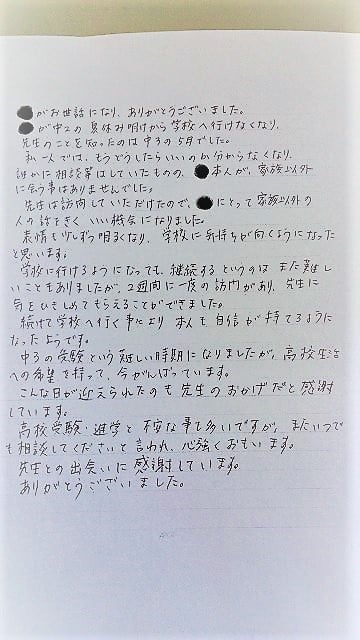 ●がお世話になり、ありがとうございました。
●が中2の夏休み明けから学校へ行けなくなり、
先生のことを知ったのは中3の5月でした。
私一人では、もうどうしたらいいのか分からなくなり、
誰かに相談等はしていたものの、●本人が、家族以外
に会う事はありませんでした。
先生は訪問していただけたので、●にとって家族以外の
人の話をきく いい機会になりました。
表情も少しずつ明るくなり、学校に気持ちが向くようになった
と思います。
学校に行けるようになっても、継続するというのは また難し
いこともありましたが、2週間に一度の訪問があり、先生に
気をひきしめてもらえることができました。
続けて学校へ行く事により 本人も自信が持てるように
なったようです。
中3の受験という難しい時期になりましたが、高校生活
への希望を持って、今がんばっています。
こんな日が迎えられたのも先生のおかげだと感謝
しています。
高校受験・進学と不安な事も多いですが、またいつで
も相談してくださいと言われ、心強くおもいます。
先生との出会いに感謝しています。
ありがとうございました。